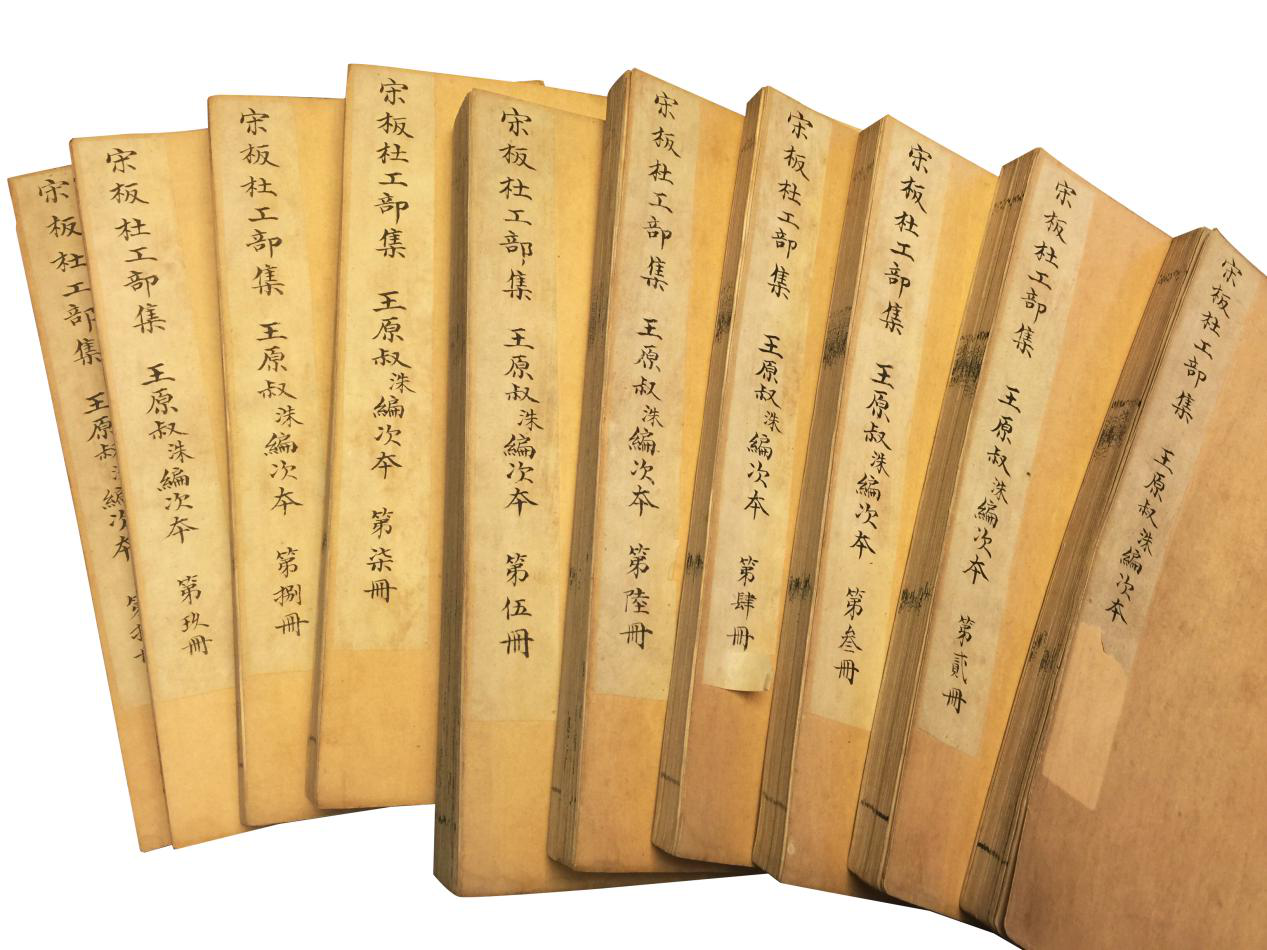 宋板杜工部集 王原叔洙編次本
宋板杜工部集 王原叔洙編次本 第貳冊
宋板杜工部集 王原叔洙編次本 第叄冊
宋板杜工部集 王原叔洙編次本 第肆冊
宋板杜工部集 王原叔洙編次本 第陸冊
宋板杜工部集 王原叔洙編次本 第伍冊
宋板杜工部集 王原叔洙編次本 第柒冊
宋板杜工部集 王原叔洙編次本 第捌冊
宋板杜工部集 王原叔洙編次本 第玖冊
宋板杜工部集 王原叔洙編次本 第